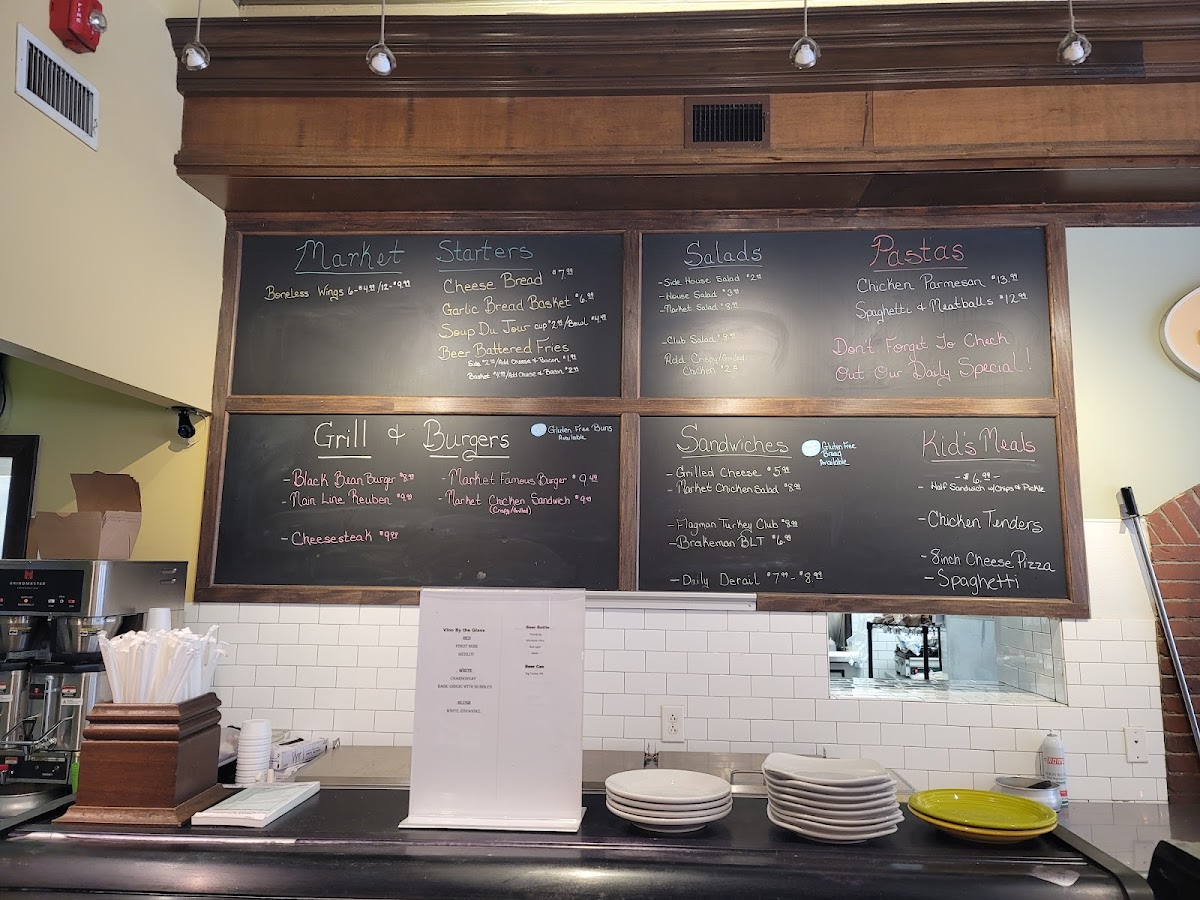 FIRE
Market Starters
Boneless Wings 6-$4.99/12-$9.99
Cheese Bread $7.99
Garlic Bread Basket $6.99
Soup Du Jour cup $2.99/Bowl $4.99
Beer Battered Fries
Side $2.99/Add Cheese & Bacon $1.99
Basket $4.99/Add Cheese & Bacon $2.99
Salads
-Side House Salad $2.99
-House Salad $3.99
-Market Salad $8.99
-Club Salad $9.99
Add Crispy/Grilled
Chicken $2.99
Pasta's
Chicken Parmesan $13.99
Spaghetti & Meatballs $12.99
Don't Forget To Check
Out Our Daily Special!
Grill & Burgers
Gluten Free Buns
Available
-Black Bean Burger $8.99
-Main Line Reuben $9.99
-Cheesesteak $9.99
-Market Famous Burger $9.49
-Market Chicken Sandwich $9.49
(Crispy/Grilled)
Sandwiches
Gluten Free
Bread
Available
-Grilled Cheese $5.99
-Market Chicken Salad $8.99
-Flagman Turkey Club $8.99
-Brakeman BLT $6.99
-Daily Derail $7.99-$8.99
Kid's Meals
-$6.99-
-Half Sandwich w/Chips & Pickle
-Chicken Tenders
-8inch Cheese Pizza
-Spaghetti
GRINDMASTER
Vino By the Glass
RED
PINOT NOIR
MERLOT
WHITE
CHARDONNAY
BLUSH
WHITE ZINFANDEL
Beer Bottle
Beer Can